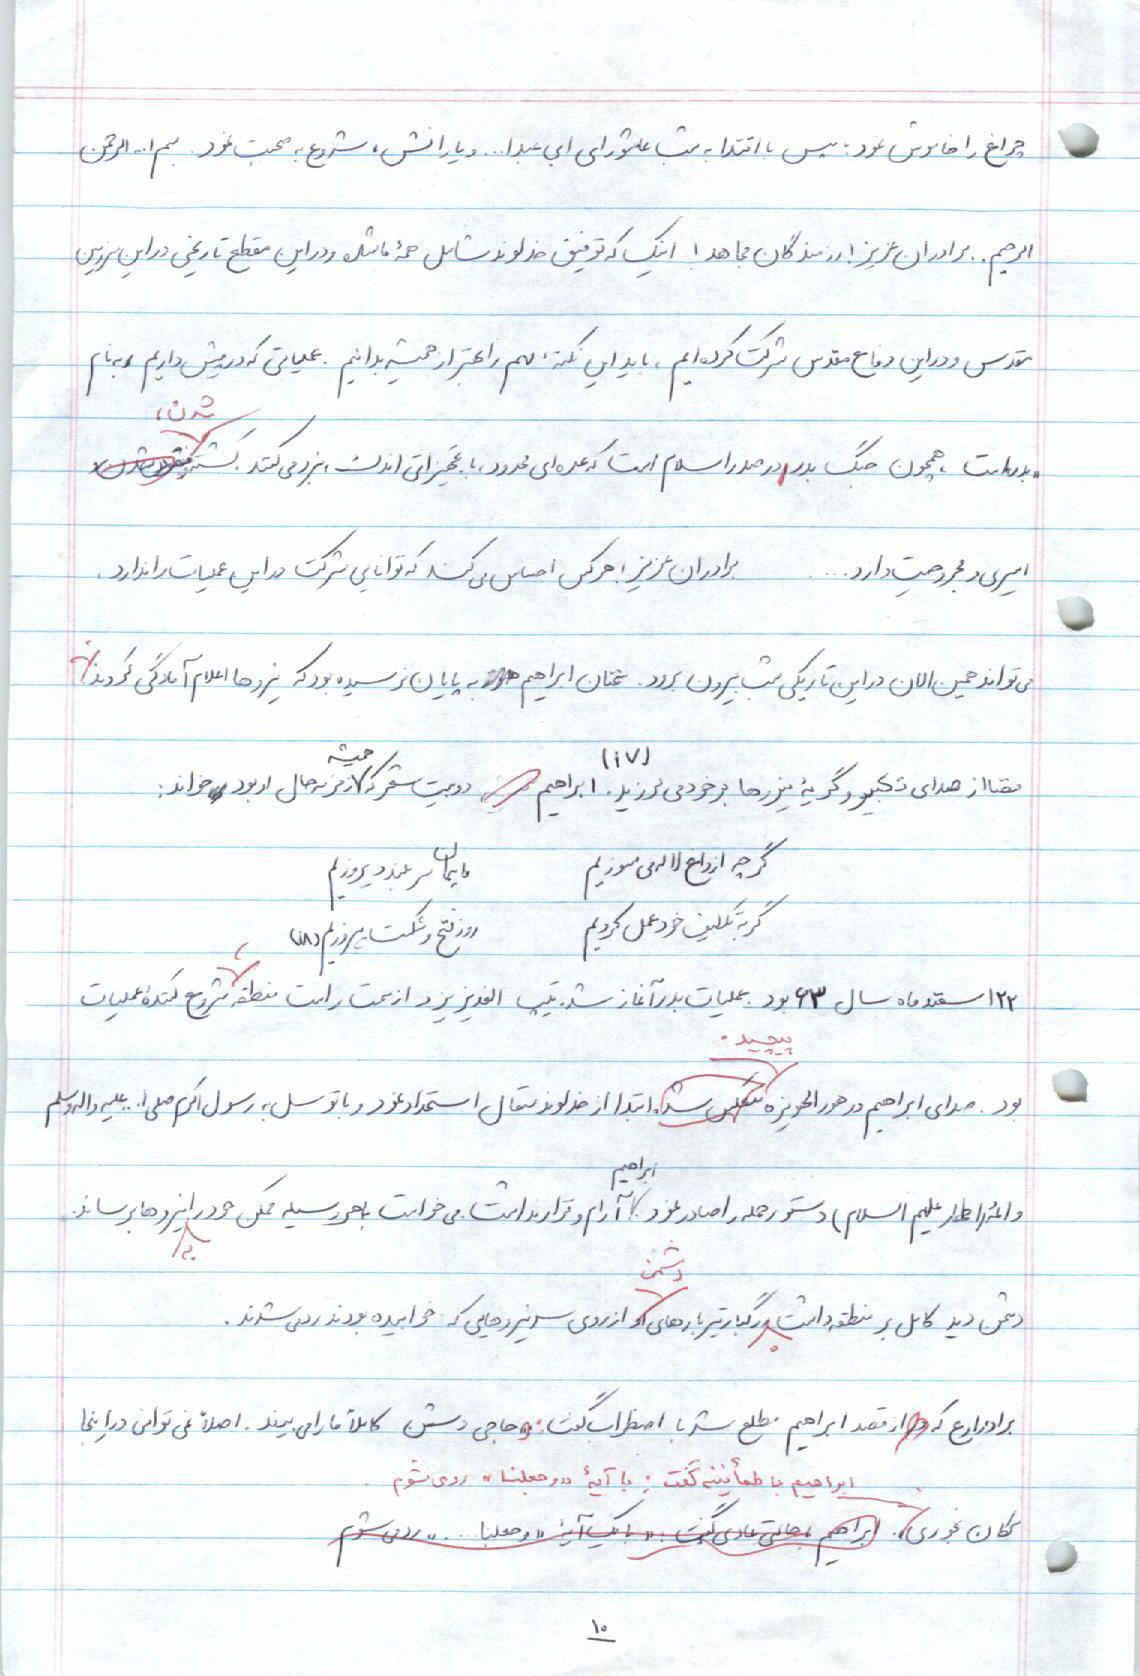 چراغ را خاموش نمود؛ سپس با اقتدا به شب عاشورای ابی عبدا... و یارانش، شروع به صحبت نمود. بسم ا... الرحمن
الرحیم. برادران عزیز! رزمندگان مجاهد! اینک که توفیق خداوند شامل همۀ ما شده و در این مقطع تاریخی در این سرزمین
مقدس و در این دفاع مقدس شرکت کرده ایم، باید این نکتۀ مهم را بهتر از همیشه بدانیم. عملیاتی که در پیش داریم و به نام
شدن،
بدر است، همچون جنگ بدر در صدر اسلام است که عده ای محدود، با تجهیزاتی اندک، نبرد می کنند. کشته
اسیری و مجروحیت دارد.... برادران عزیز! هر کس احساس می کند که توانایی شرکت در این عملیات را ندارد،
می تواند همین الان در این تاریکی شب بیرون برود. سخنان ابراهیم به پایان نرسیده بود که نیروها اعلام آمادگی کردند.
(۱۷) همیشه
فضا از صدای تکبیر و گریۀ نیروها بر خود می لرزید. ابراهیم دو بیت شعر که زمزمه حال او بود، خواند:
گرچه از داغ لاله می سوزیم ما همان سر بلند دیروزیم
گر به تکلیف خود عمل کردیم روز فتح و شکست پیروزیم (۱۸)
۲۲ اسفند ماه سال ۶۳ بود. عملیات بدر آغاز شد. تیپ الغدیر یزد از سمت راست منطقه، شروع کنندۀ عملیات
پیچید.
بود. صدای ابراهیم در هور الهویزه منعکس شد. ابتدا از خداوند متعال استمداد نمود و با توسل به رسول اکرم صلی ا... علیه و اله وسلم
ابراهیم
و ائمۀ اطهار (علیهم السلام) دستور حمله را صادر نمود. آرام و قرار نداشت. می خواست با هر وسیله ممکن خود را به نیروها برساند.
دشمن
دشمن دید کامل بر منطقه داشت و رگبار تیربارهای او از روی سر نیروهایی که خوابیده بودند رد می شدند.
برادر زارع که از قصد ابراهیم مطلع شد با اضطراب گفت: «حاجی دشمن کاملاً ما را می بیند. اصلاً نمی توانی در اینجا
ابراهیم با طمأنینه گفت: با آیۀ «وجعلنا» رد می شوم.
تکان بخوری». ابراهیم با حالتی عادی گفت: «با یک آیۀ «وجعلنا...» رد می شوم
۱۰